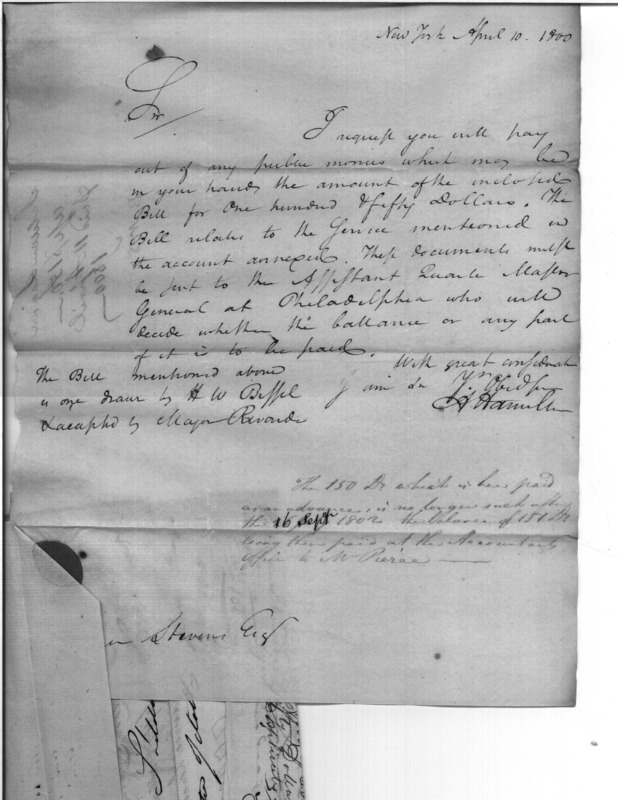 New York April 10. 1800
Sir
I request you will pay
out of any public monies which may be
in your hands the amount of the inclosed
Bill for One hundred & fifty Dollars. The
Bill relates to the Service mentioned in
the account annexed. These documents must
be sent to the Assistant Quarte Master
General at Philadelphia who will
decide whether the ballance or any part
of it is to be paid.
With great consideration
I am Sir Yr. Obed ser
A Hamilton
The Bill mentioned above
is one drawn by H W Bissel
& accepted by Major Rivardi
The 150 Dr which is here paid
as an advance, is no longer such after
the 16 Sept 1802 the balance of 151 Dr
being then paid at the Accountants
office to Mr Pierce
Stevens Esq